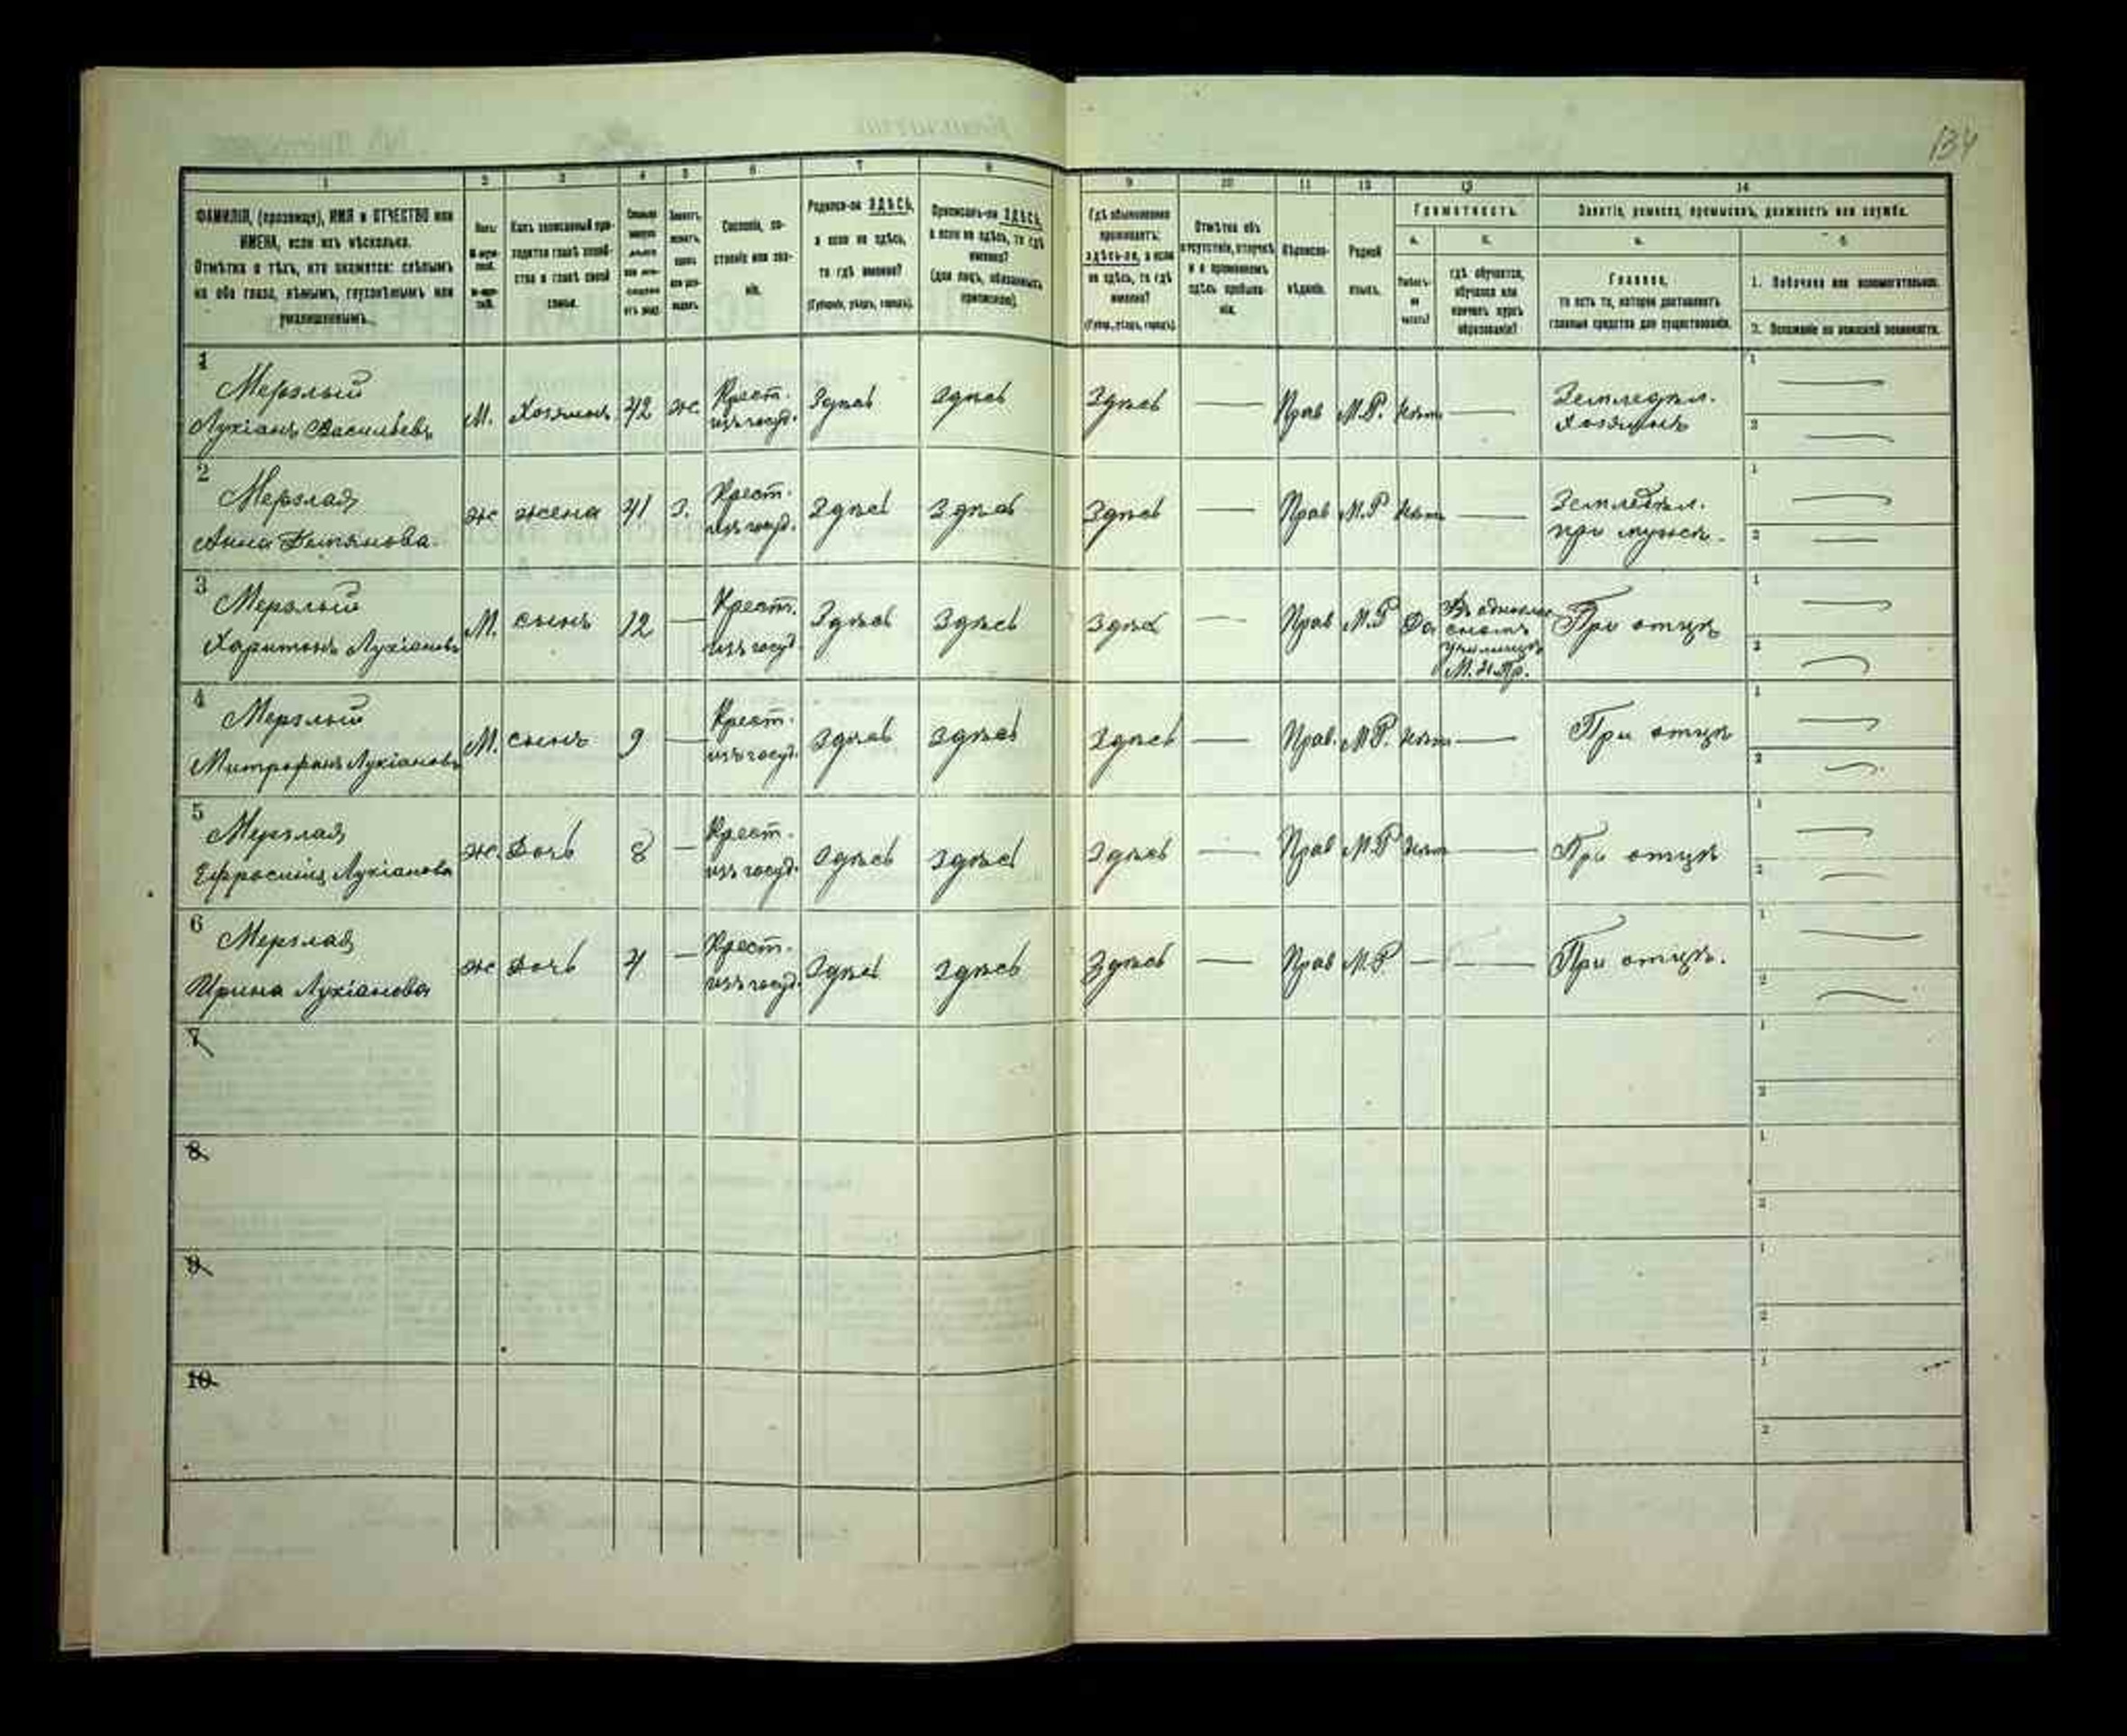 134
1 2 3 4 5 6 7 8 9 10 11 12 13 14
ФАМИЛІЯ, (прозвище), ИМЯ и ОТЧЕСТВО или
ИМЕНА, если ихъ нѣсколько.
Отмѣтка о тѣхъ, кто окажется: слѣпымъ
на оба глаза, нѣмымъ, глухонѣмымъ или
умалишеннымъ.
Полъ:
Какъ записанный при-
ходится главѣ хозяй-
ства и главѣ своей
семьи.
Сословіе, со-
стояніе или зва-
ніе.
Родился-ли ЗДѢСЬ,
а если не здѣсь,
то гдѣ именно?
(Губернія, уѣздъ, городъ).
Приписанъ-ли ЗДѢСЬ,
а если не здѣсь, то гдѣ
именно?
(для лицъ, обязанныхъ
припискою).
Гдѣ обыкновенно
проживаетъ:
здѣсь-ли, а если
не здѣсь, то гдѣ
именно?
(Губер., уѣздъ, городъ).
Отмѣтка объ
отсутствіи, отлучкѣ
и о временномъ
здѣсь пребыва-
ніи.
Вѣроиспо-
вѣданіе.
Родной
языкъ.
Грамотность.
а. б.
Умѣетъ-
ли
читать?
гдѣ обучается,
обучался или
кончилъ курсъ
образованія?
Занятіе, ремесло, промыселъ, должность или служба.
а. б.
Главное,
то есть то, которое доставляетъ
главныя средства для существованія.
1. Побочное или вспомогательное.
2. Положеніе по воинской повинности.
1 Мерзлый
Лукіанъ Васильевъ М. Хозяинъ 42 ж. Крест. изъ госуд. Здѣсь Здѣсь Здѣсь — Прав М.Р. Нѣтъ — Земледѣл. хозяинъ
2 Мерзлая
Анна Демянова. ж жена 41 з. Крест. изъ госуд. Здѣсь Здѣсь Здѣсь — Прав М.Р Нѣтъ — Земледѣл. при мужѣ.
3 Мерзлый
Харитонъ Лукіановъ М. сынъ 12 — Крест. изъ госуд. Здѣсь Здѣсь Здѣсь — Прав М.Р Да Въ однокласномъ училищѣ М. Н. Пр. При отцѣ
4 Мерзлый
Митрофанъ Лукіановъ М. сынъ 9 — Крест. изъ госуд. Здѣсь Здѣсь Здѣсь — Прав. М.Р. Нѣтъ — При отцѣ
5 Мерзлая
Ефросинія Лукіанова ж. Дочь 8 — Крест. изъ госуд. Здѣсь Здѣсь Здѣсь — Прав М.Р Нѣтъ — При отцѣ
6 Мерзлая
Ирина Лукіанова ж Дочь 4 — Крест. изъ госуд. Здѣсь Здѣсь Здѣсь — Прав М.Р — — При отцѣ.
7
8
9
10